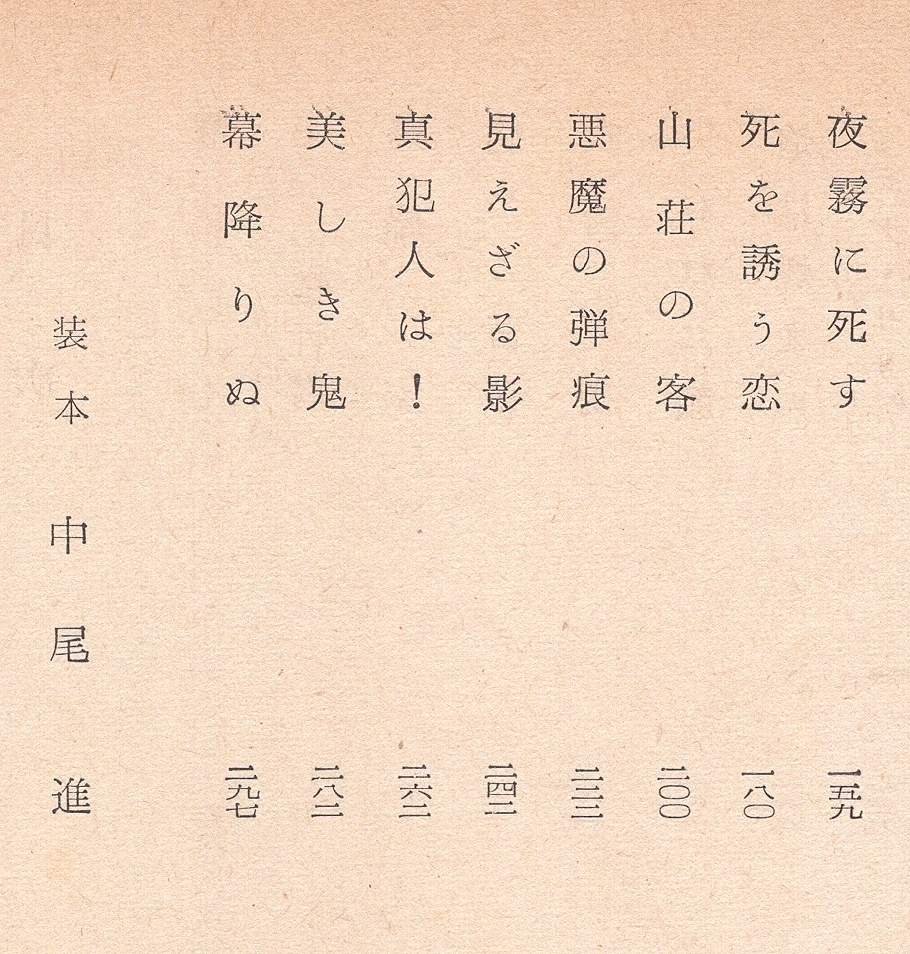 夜霧に死す 一五九
死を誘う恋 一八〇
山荘の客 二〇〇
悪魔の弾痕 二二二
見えざる影 二四二
真犯人は！ 二六二
美しき鬼 二八二
幕降りぬ 二九七
装本 中尾進